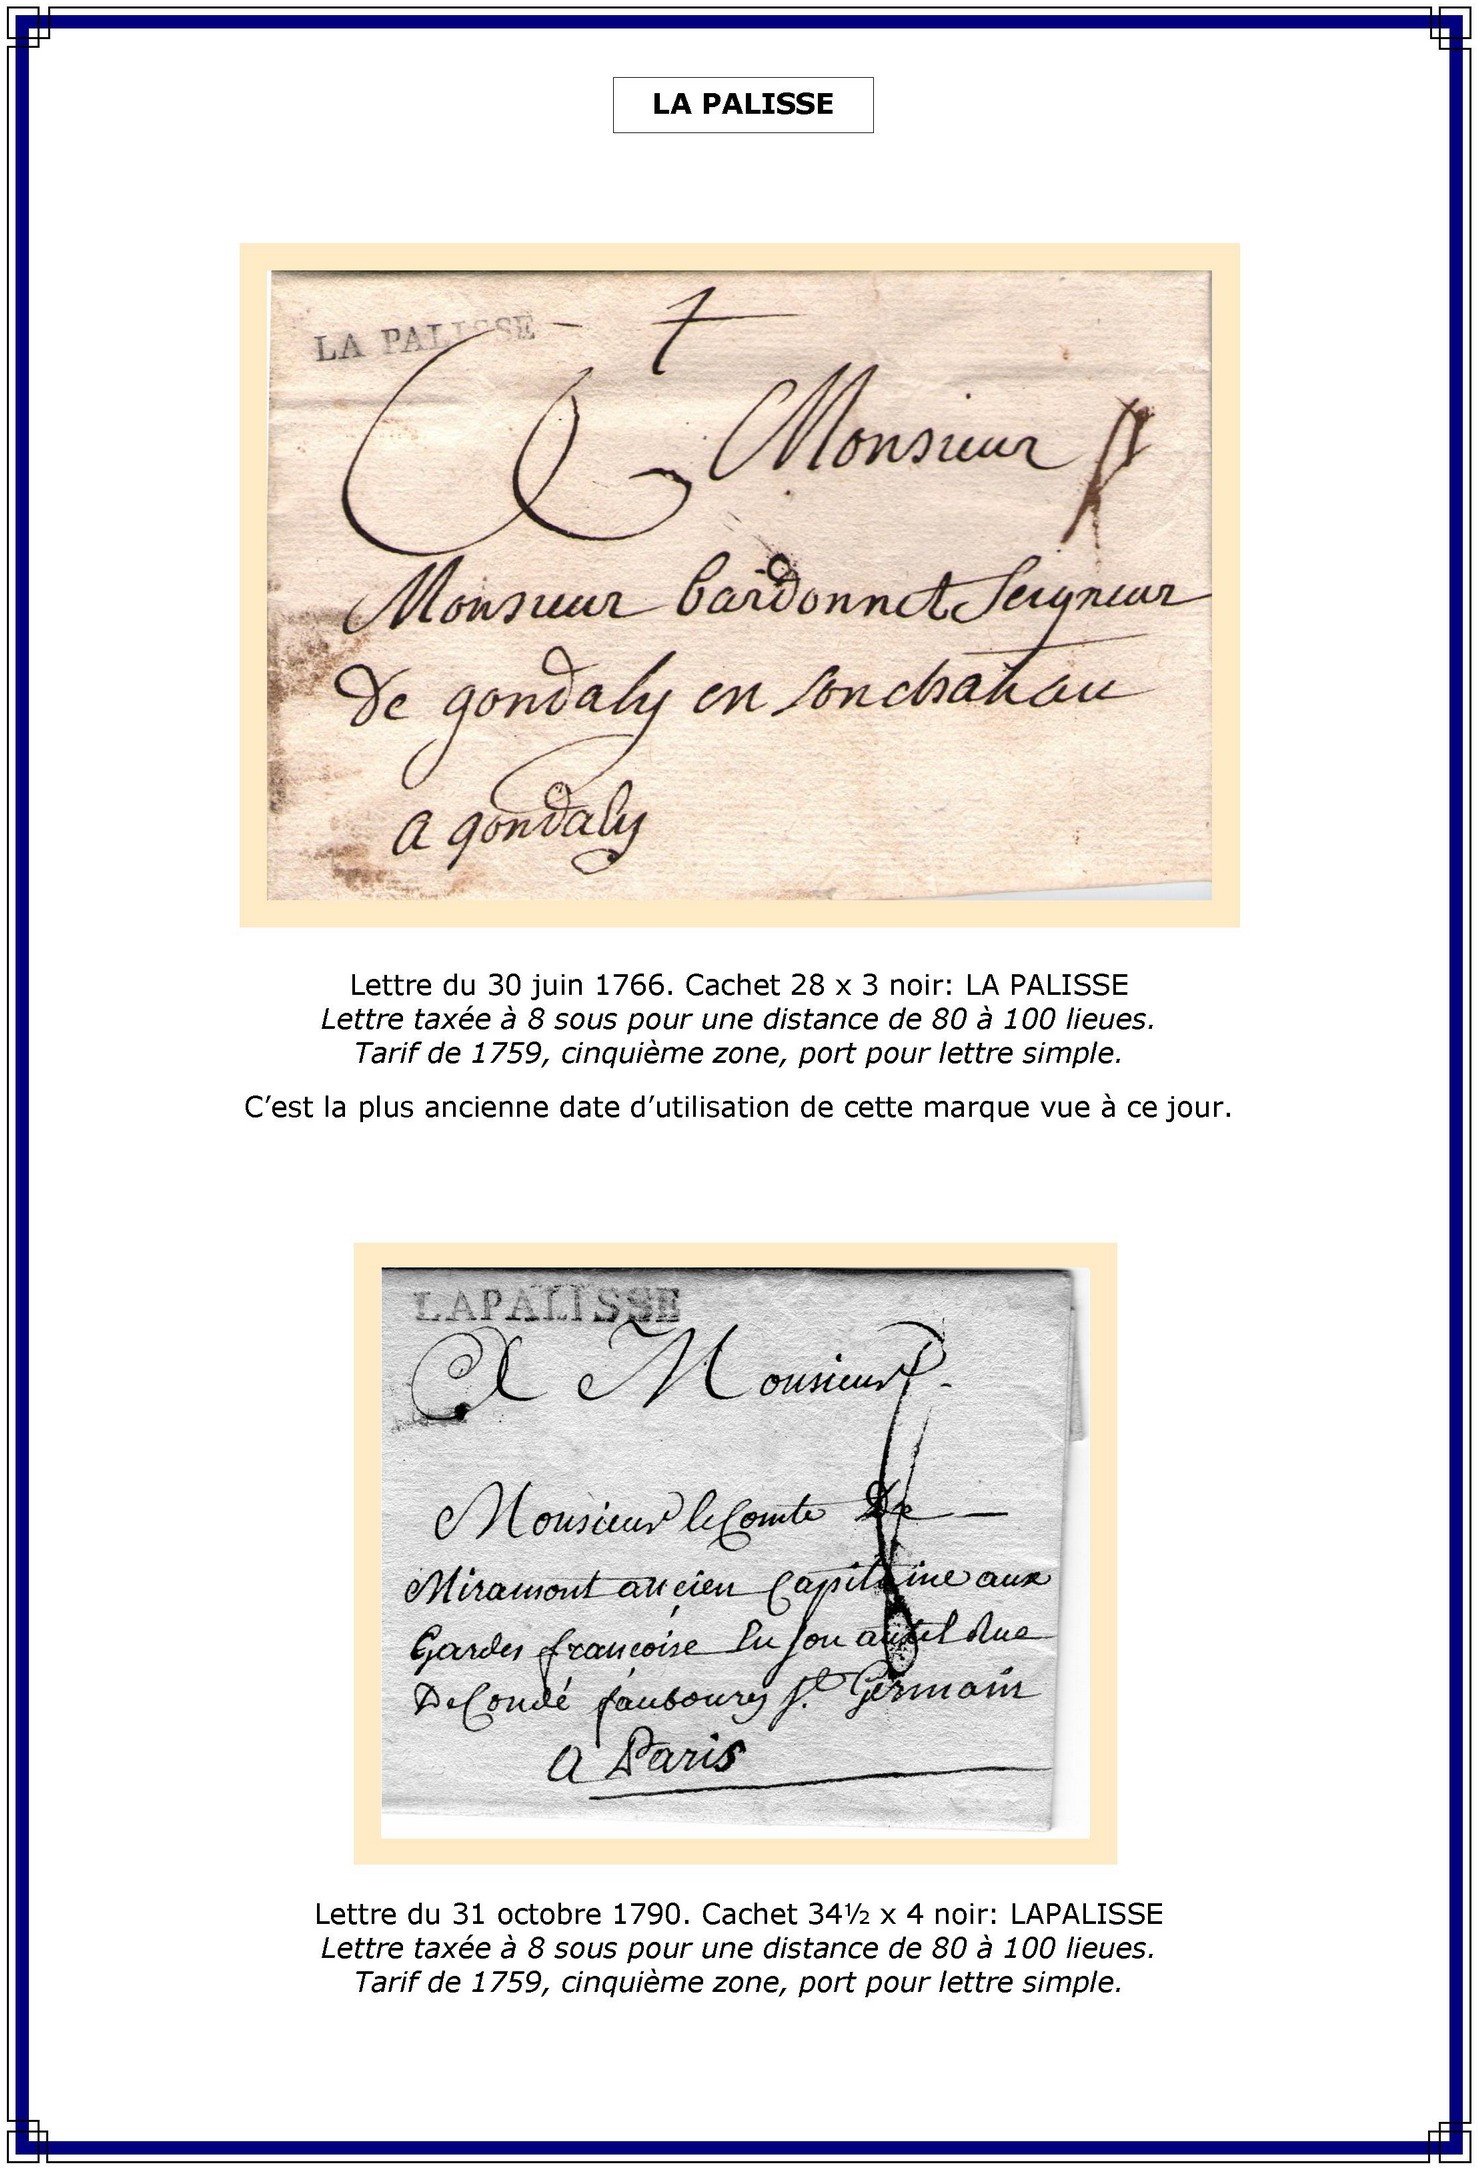 LA PALISSE
LA PALISSE
A Monsieur
Monsieur bardonnet Seigneur
De gondaly en son chateau
a gondaly
Lettre du 30 juin 1766. Cachet 28 x 3 noir: LA PALISSE
Lettre taxée à 8 sous pour une distance de 80 à 100 lieues.
Tarif de 1759, cinquième zone, port pour lettre simple.
C’est la plus ancienne date d’utilisation de cette marque vue à ce jour.
LAPALISSE
A Monsieur
Monsieur le Comte De
Miramont ancien Capitaine aux
Gardes françoise En son autel Rue
De Condé faubourg St. Germain
a Paris
Lettre du 31 octobre 1790. Cachet 34½ x 4 noir: LAPALISSE
Lettre taxée à 8 sous pour une distance de 80 à 100 lieues.
Tarif de 1759, cinquième zone, port pour lettre simple.